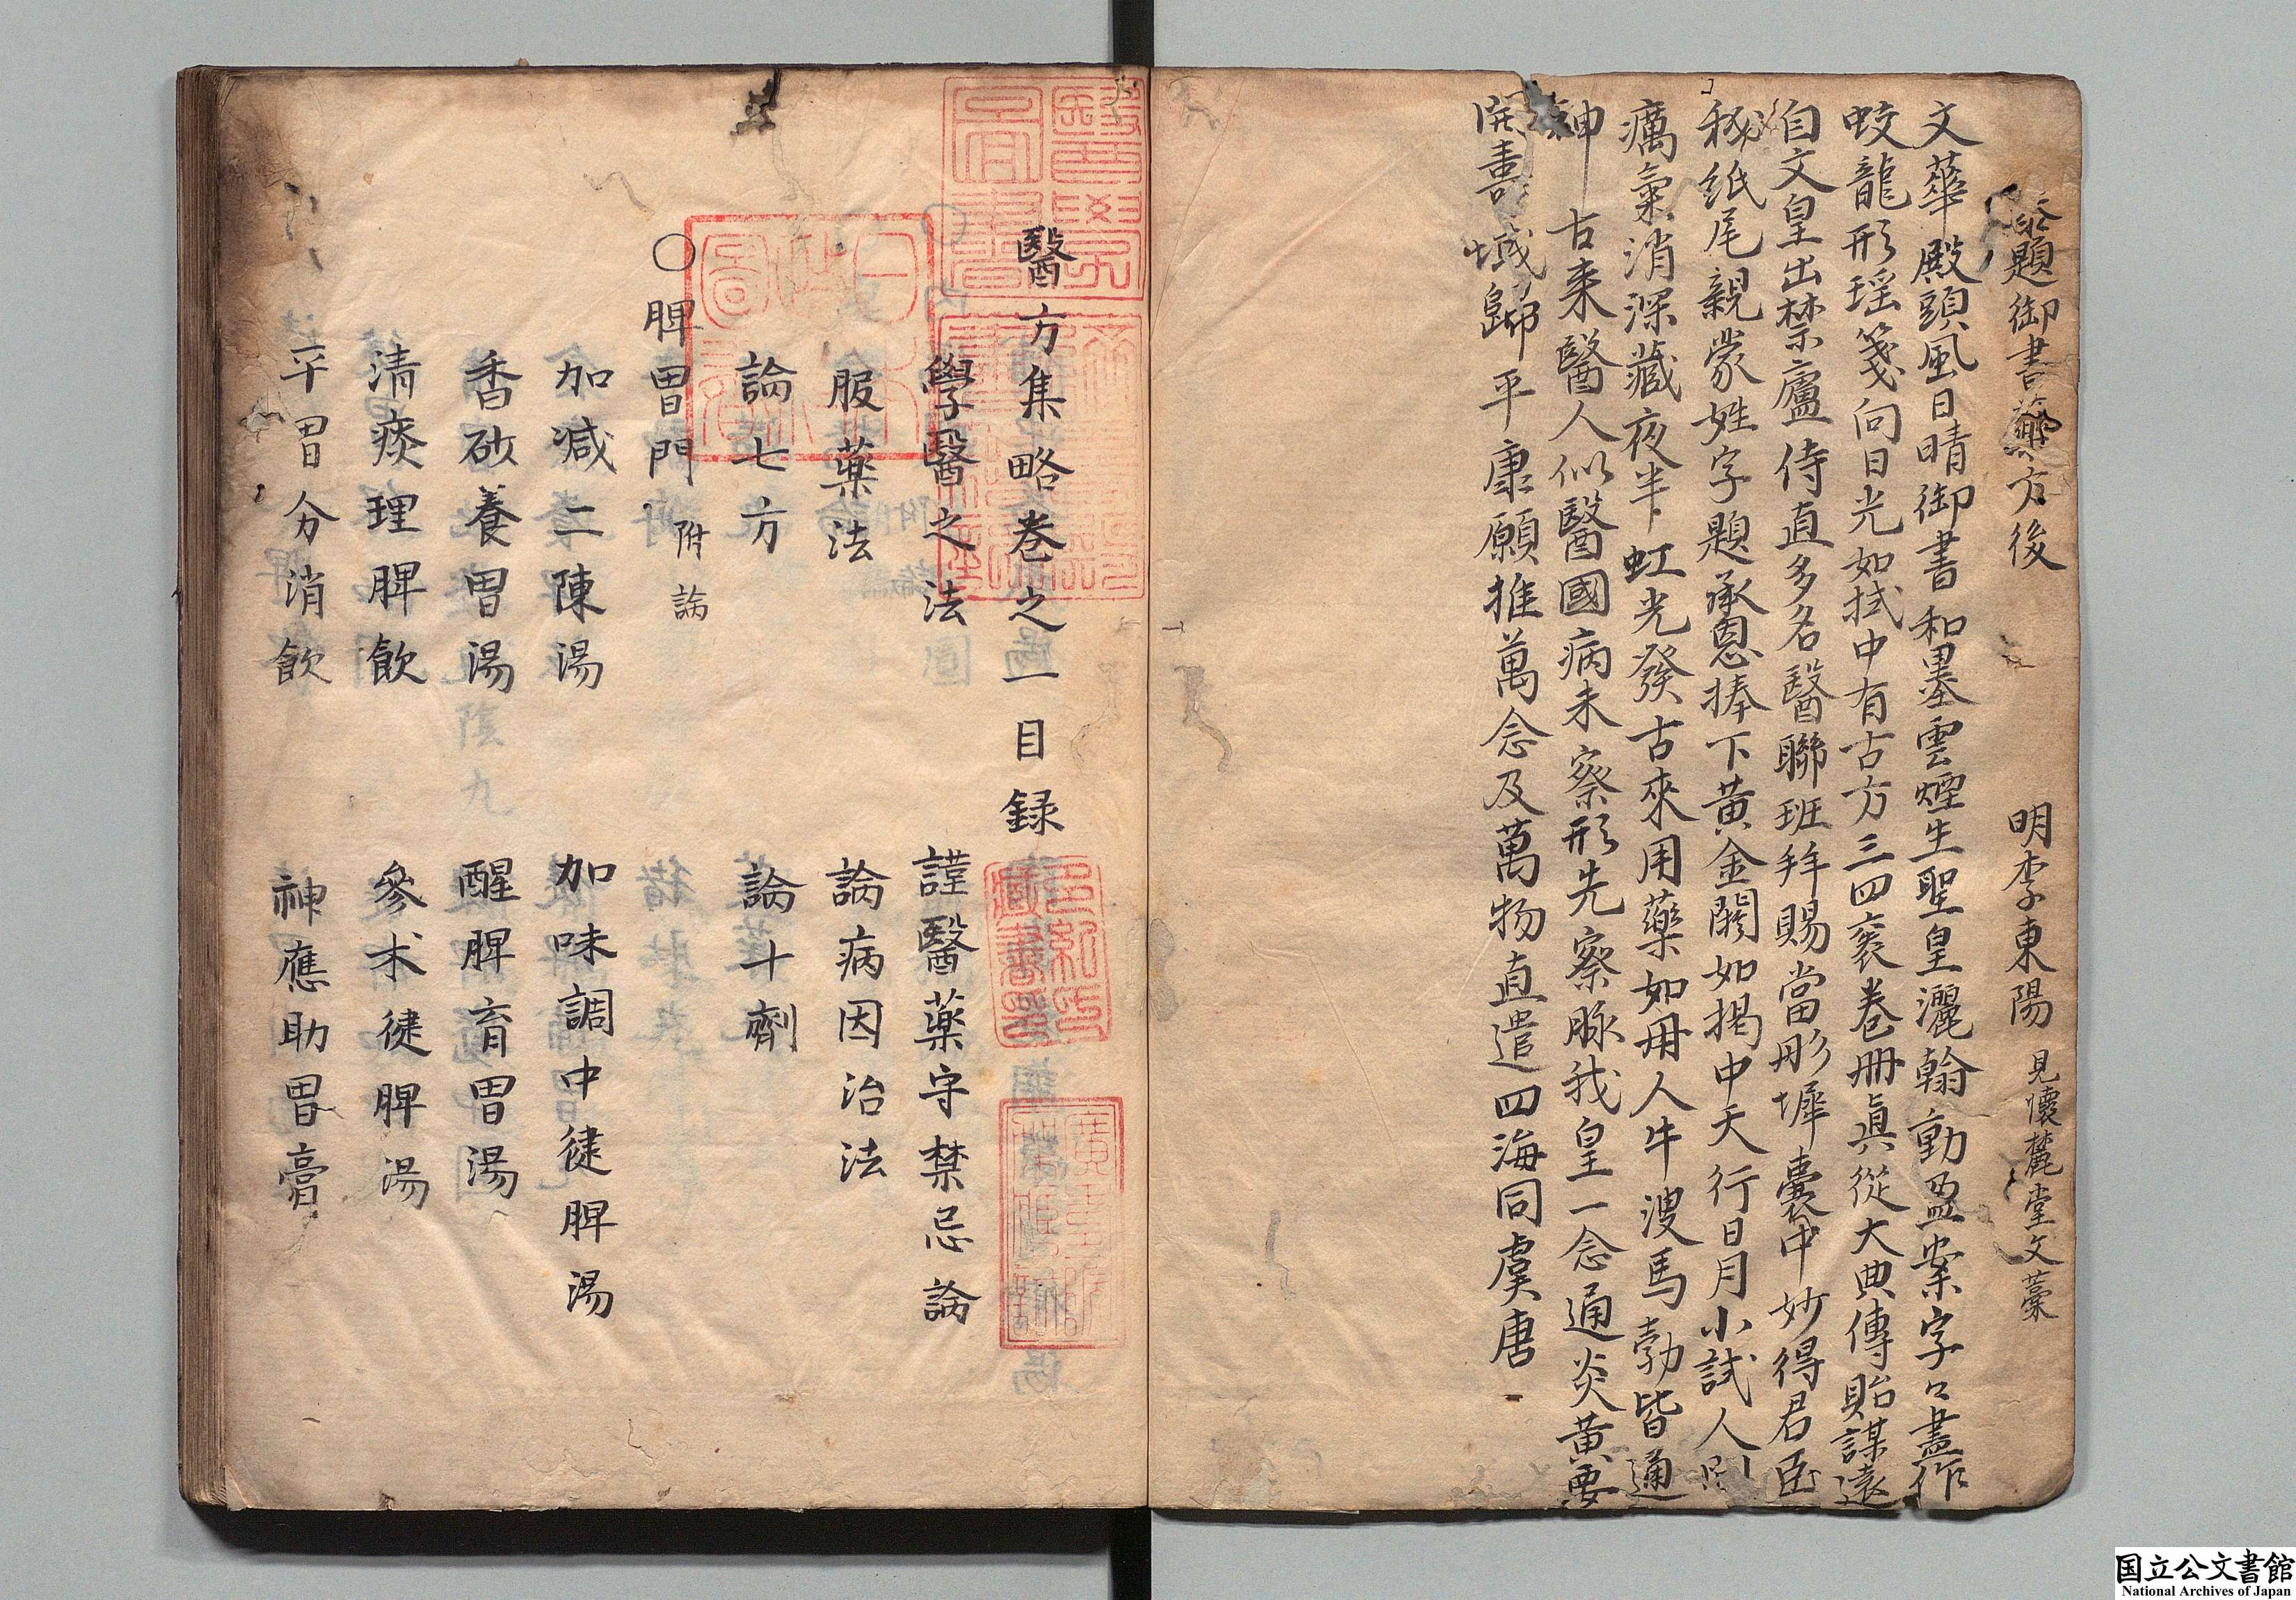 題御書藥方後　明李東陽　見懷麓堂文藁
文華殿頭風日晴御書和墨雲煙生聖皇灑翰動盈案字々盡作
蛟龍形瑶箋向日光如拭中有古方三四裘卷冊眞從大典傳貽謀遠
自文皇出禁廬侍直多名醫聯班拜賜當彤墀囊中妙得君臣
秘紙尾親蒙姓字題承恩捧下黃金闕如揭中天行日月小試人間
癘氣消深藏夜半虹光發古來用藥如用人牛溲馬勃皆通
神　古来醫人似醫國病未察形先察脉我皇一念通炎黃要
開壽域歸平康願推萬念及萬物直遣四海同虞唐
醫方集略卷之一目録
學醫之法　謹醫藥守禁忌論
服藥法　論病因治法
論七方　論十劑
〇脾胃門　附論
加减二陳湯　加味調中健脾湯
香砂養胃湯　醒脾育胃湯
清痰理脾飲　參术健脾湯
平胃分消飲　神應助胃膏
国立公文書館
National Archives of Japan